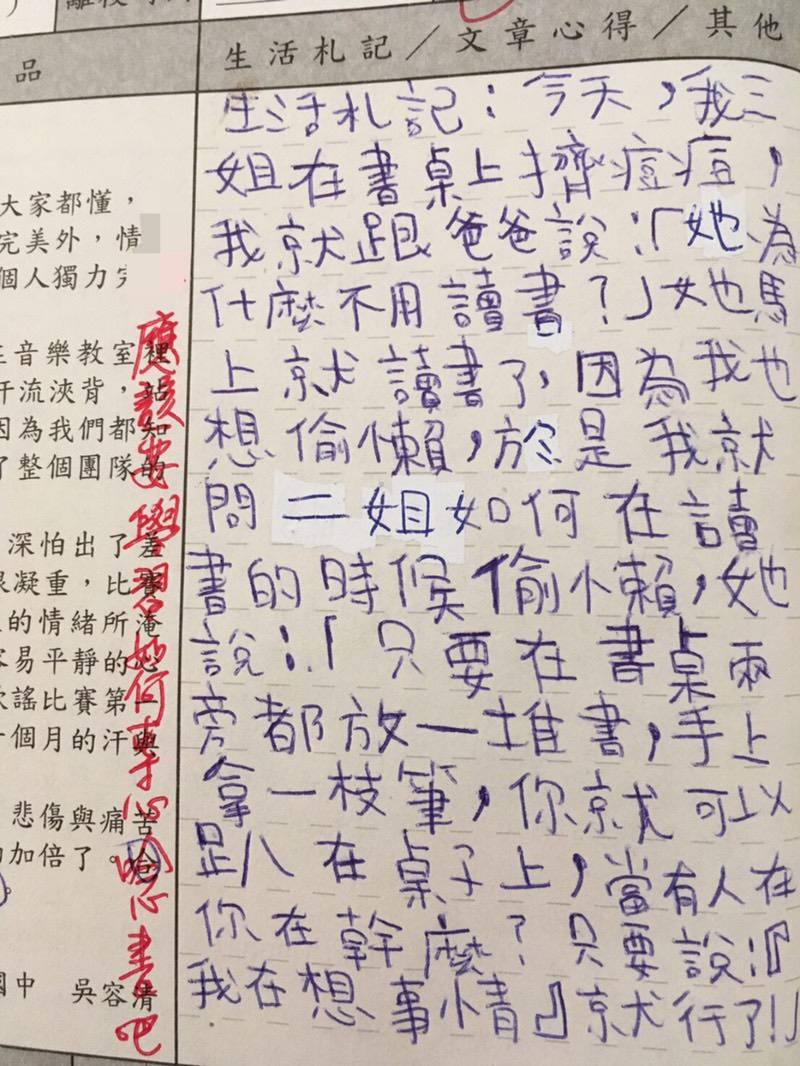 品
生活札記／文章心得／其他
生活札記：今天，我三
姐在書桌上擠痘痘，
我就跟爸爸說：「她為
什麼不用讀書？」她馬
上就讀書了，因為我也
想偷懶，於是我就
問二姐如何在讀
書的時候偷懶，她
說：「只要在書桌兩
旁都放一堆書，手上
拿一枝筆，你就可以
趴在桌子上，當有人在
你在幹麼？只要說：『
我在想事情』就行了！」
大家都懂，
完美外，情
個人獨力完
音樂教室裡
汗流浹背，站
因為我們都知
了整個團隊的
深怕出了差
凝重，比賽
的情緒所淹
容易平靜的心
歌謠比賽第一
個月的汗與
悲傷與痛苦
加倍了。
國中 吳容清
應該要學習如何專心唸書吧